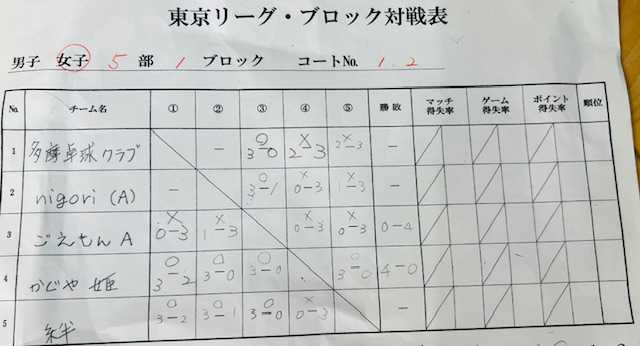 東京リーグ・ブロック対戦表
男子 女子 5 部 1 ブロック コートNo. 1.2
No. チーム名 ① ② ③ ④ ⑤ 勝敗 マッチ得失率 ゲーム得失率 ポイント得失率 順位
1 多摩卓球クラブ − ○ 3−0 × 2−3 × 2−3 −
2 nigori (A) − ○ 3−1 × 0−3 × 1−3 −
3 ごえもん A × 0−3 × 1−3 × 0−3 × 0−3 0−4
4 かじや 姫 ○ 3−2 ○ 3−0 ○ 3−0 ○ 3−0 4−0
5 ○ 3−2 ○ 3−1 ○ 3−0 × 0−3 −